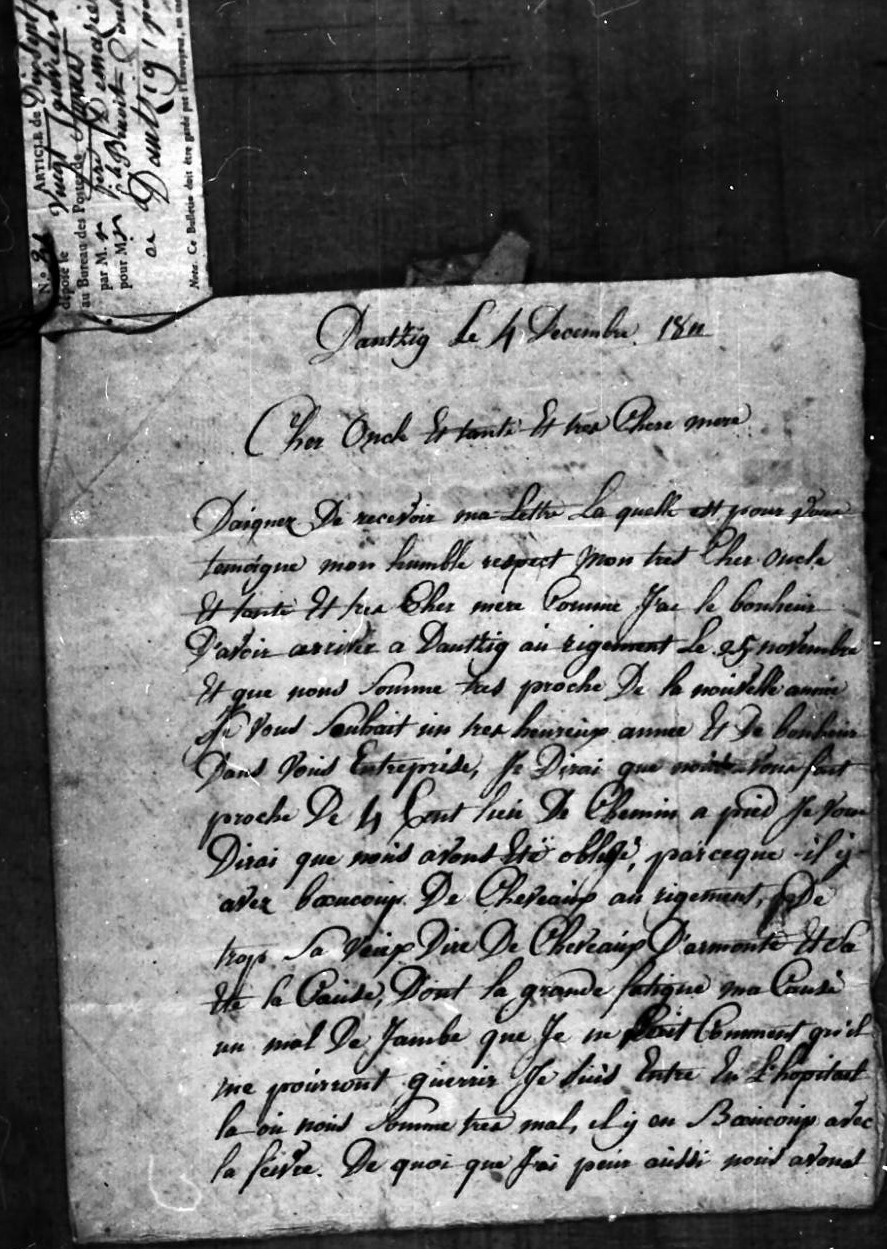 N.° ARTICLE de
déposé le Vingt
au Bureau des Postes de
par M.
pour M. Benoit
a Dantzig
Nota. Ce Bulletin doit être gardé par l'Envoyeur,
Dantzig Le 4 Decembre. 1811
Cher Oncle Et tante Et tres Chere mere
Daignez De recevoir ma Lettre La quelle est pour vous
temoigne mon humble respect Mon tres Cher oncle
Et tante Et tres Cher mere Comme J'ai le bonheur
D'avoir arriver a Dantzig au rigement Le 25 novembre
Et que nous Somme tres proche De la nouvelle année
Je vous Souhait un tres heureux annee Et De bonheur
Dans Vous Entreprise, Je Dirai que nous vons fait
proche De 4 Cent lieu De Chemin a pied Je vous
Dirai que nous avons Eté obligé, parceque il y
avez baucoup De Cheveaux au rigement, De
trop Sa veux Dire De Cheveaux D'armonte Et Sa
Eté la Cause, Dont la grande fatigue ma Causé
un mal De Jambe que Je ne Comment qu'il
me pourront guerrir Je suis Entre En L'hopitaut
la ou nous Somme tres mal, il y en Baucoup avec
la feivre. De quoi que J'ai peur aussi nous avons